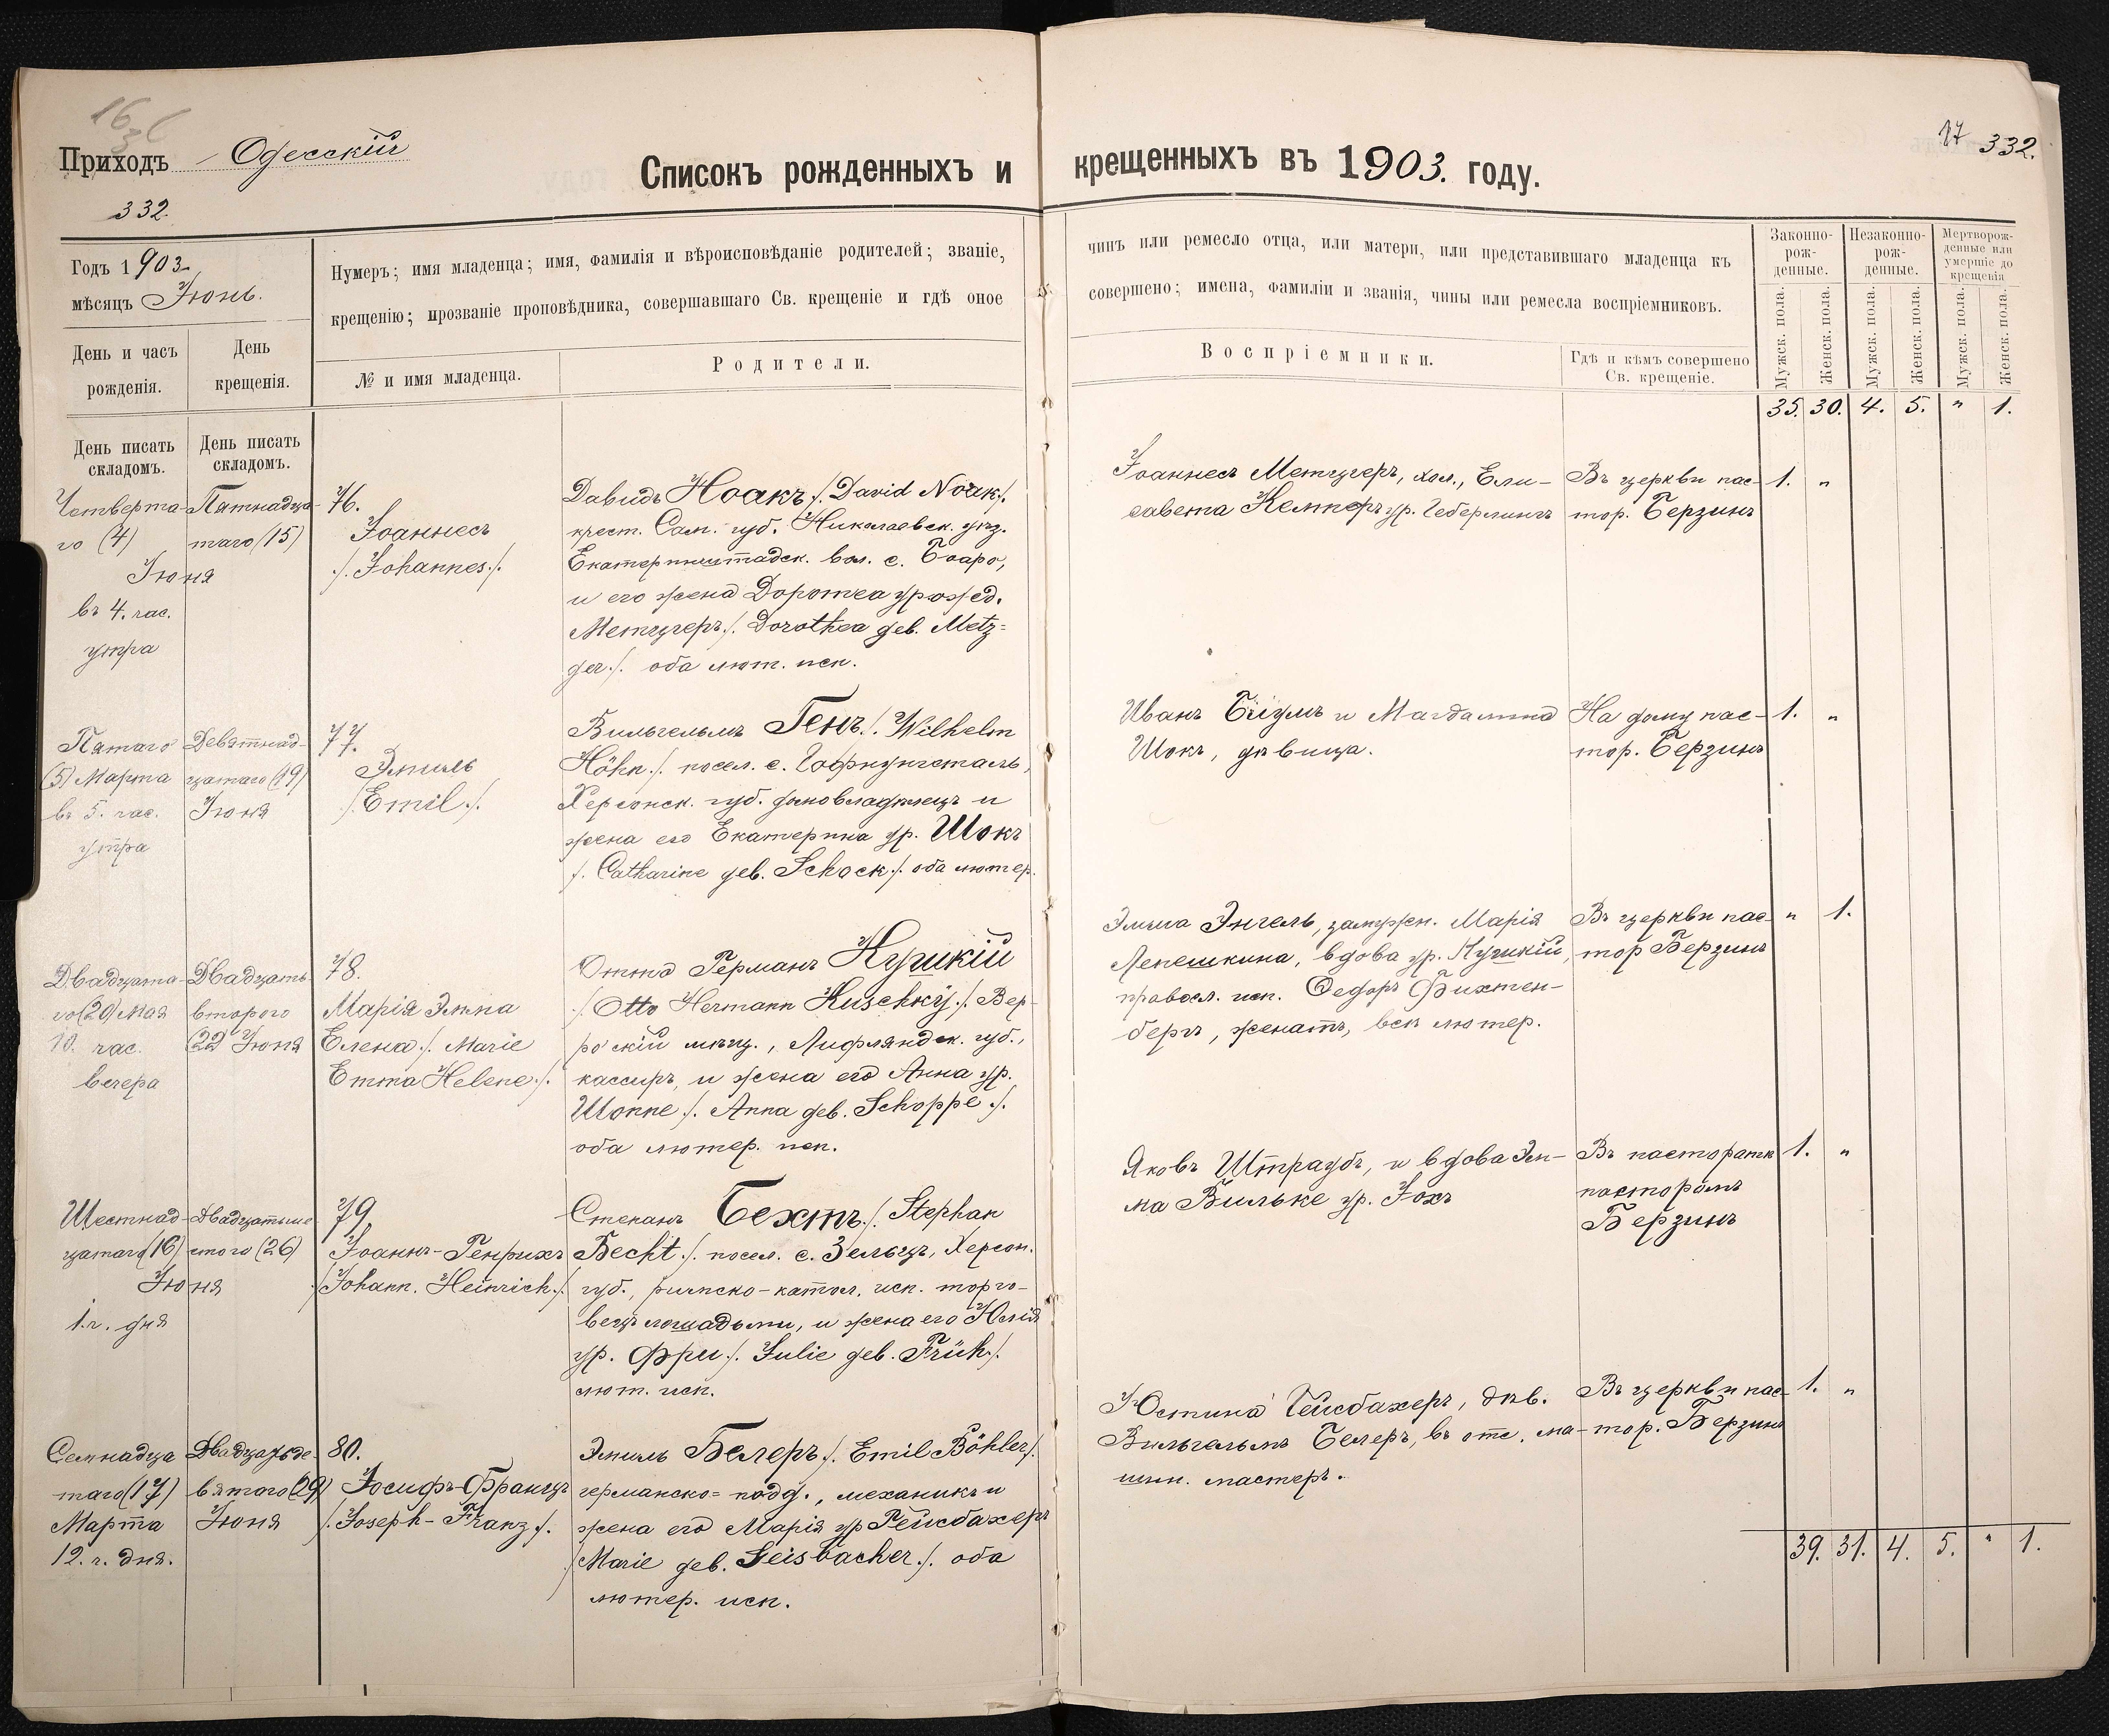 16
Приходъ Одесскій
332.
Списокъ рожденныхъ и крещенныхъ въ 1903. году.
17 332.
Годъ 1903.
мѣсяцъ Іюнь.
Нумеръ; имя младенца; имя, фамилія и вѣроисповѣданіе родителей; званіе,
крещенію; прозваніе проповѣдника, совершавшаго Св. крещеніе и гдѣ оное
чинъ или ремесло отца, или матери, или представившаго младенца къ
совершено; имена, фамиліи и званія, чины или ремесла воспріемниковъ.
День и часъ
рожденія.
День
крещенія.
№ и имя младенца.
Родители.
Воспріемники.
Гдѣ и кѣмъ совершено
Св. крещеніе.
Законно-
рож-
денные.
Незаконно-
рож-
денные.
Мертворож-
денные или
умершіе до
крещенія
Мужск. пола.
Женск. пола.
Мужск. пола.
Женск. пола.
Мужск. пола.
Женск. пола.
35. 30. 4. 5. " 1.
День писать
складомъ.
День писать
складомъ.
Четверта-
го (4)
Іюня
въ 4. час.
утра
Пятнадца-
таго (15)
76.
Іоаннесъ
./. Johannes ./.
Давидъ Ноакъ ./. David Noak ./.
крест. Сам. губ. Николаевск. уѣз.
Екатериненштадск. вол. с. Боаро,
и его жена Доротеа урожд.
Метцгеръ ./. Dorothea geb. Metz=
ger ./. оба лют. исп.
Іоаннесъ Метцгеръ, хол., Ели-
савета Кемпферъ ур. Геберлингъ
Въ церкви пас-
тор. Берзинъ
1. "
Пятаго
(5) Марта
въ 5. час.
утра
Девятнад-
цатаго (19)
Іюня
77.
Эмиль
./. Emil ./.
Вильгельмъ Генъ ./. Wilhelm
Höhn ./. посел. с. Гофнунгсталь,
Херсонск. губ. домовладѣлецъ и
жена его Екатерина ур. Шокъ
./. Catharine geb. Schock ./. оба лютер.
Иванъ Бліумъ и Магдалина
Шокъ, дѣвица.
На дому пас-
тор. Берзинъ
1. "
Двадцата-
го (20) Мая
10. час.
вечера
Двадцать
второго
(22) Іюня
78.
Марія Эмма
Елена ./. Marie
Emma Helene ./.
Оттo Германъ Кушкій
./. Otto Hermann Kuschky ./. Вер-
роскій мѣщ., Лифляндск. губ.,
кассиръ, и жена его Анна ур.
Шоппе ./. Anna geb. Schoppe ./.
оба лютер. исп.
Эмма Энгель, замужн. Марія
Лепешкина, вдова ур. Кушкій,
правосл. исп. Ѳедоръ Фихтен-
бергъ, женатъ, всѣ лютер.
Въ церкви пас-
тор Берзинъ
" 1.
Шестнад-
цатаго (16)
Іюня
1. ч. дня
Двадцатыше-
стого (26)
79.
Іоаннъ-Генрихъ
./. Johann. Heinrich ./.
Степанъ Бехтъ ./. Stephan
Becht ./. посел. с. Зельцъ, Херсон.
губ., римско-катол. исп. торго-
вецъ лошадьми, и жена его Юлія
ур. Фри ./. Julie geb. Früh ./.
лют. исп.
Яковъ Штраубъ, и вдова Эм-
ма Вильке ур. Іохъ
Въ пасторатѣ
пасторомъ
Берзинъ
1. "
Семнадца
таго (17)
Марта
12. ч. дня.
Двадцатьде-
вятаго (29)
Іюня
80.
Іосифъ-Францъ
./. Joseph-Franz ./.
Эмиль Белеръ ./. Emil Böhler ./.
германско=подд., механикъ и
жена его Марія ур Гейсбахеръ
./. Marie geb. Geisbacher ./. оба
лютер. исп.
Юстина Гейсбахеръ, дѣв.
Вильгельмъ Белеръ, въ отс. ма-
шин. мастеръ.
Въ церкви пас-
тор. Берзинъ
1. "
39. 31. 4. 5. " 1.